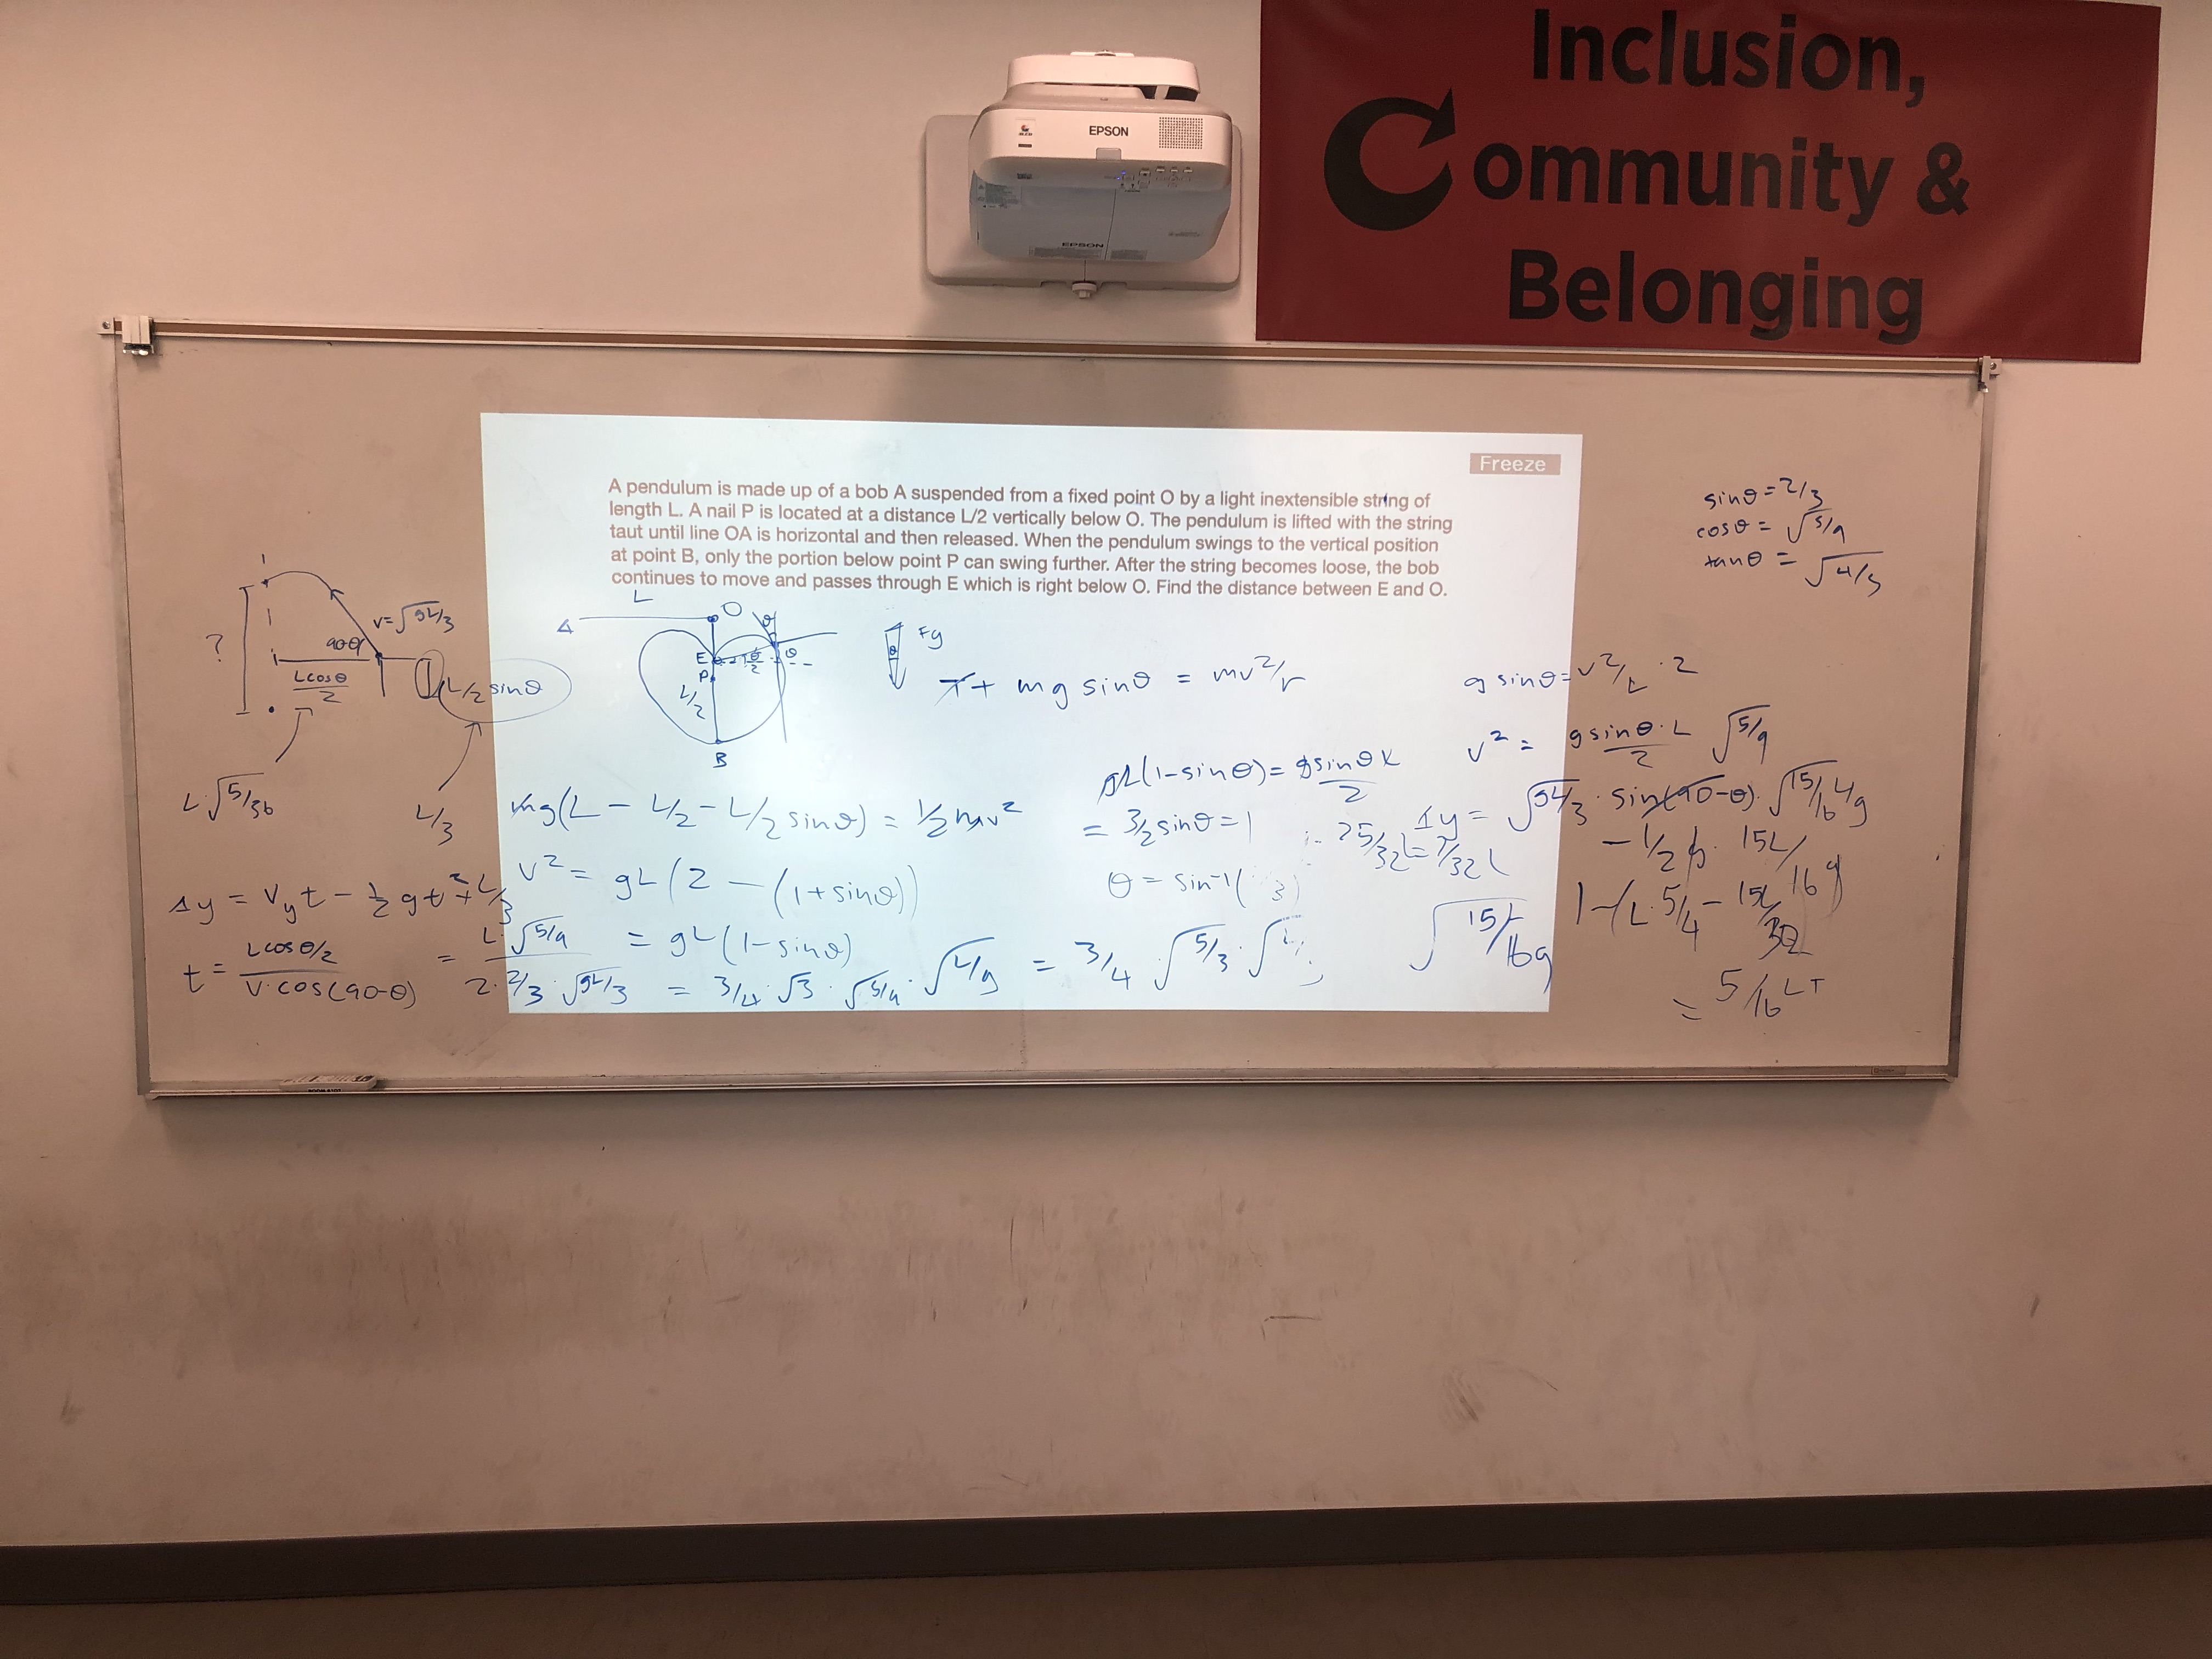 Inclusion,
Community &
Belonging
EPSON
EPSON
Freeze
A pendulum is made up of a bob A suspended from a fixed point O by a light inextensible string of
length L. A nail P is located at a distance L/2 vertically below O. The pendulum is lifted with the string
taut until line OA is horizontal and then released. When the pendulum swings to the vertical position
at point B, only the portion below point P can swing further. After the string becomes loose, the bob
continues to move and passes through E which is right below O. Find the distance between E and O.
sinθ = 2/3
cosθ = √5/9
tanθ = √4/5
L
A
O
θ
E
θ
P
L/2
B
Fg
θ
?
v = √gL/3
90-θ
Lcosθ/2
L/2 sinθ
L√5/36
L/3
T + mg sinθ = mv²/r
g sinθ = v²/L · 2
v² = g sinθ · L/2 √5/9
mg(L - L/2 - L/2 sinθ) = 1/2 mv²
gL(1-sinθ) = g sinθ L/2
= 3/2 sinθ = 1
θ = sin⁻¹( 3)
v² = gL(2 - (1+sinθ))
= gL(1-sinθ)
Δy = Vyt - 1/2 gt² + L/3
t = Lcosθ/2 / V·cos(90-θ) = L·√5/9 / 2·2/3·√gL/3 = 3/4·√3·√5/9·√L/g = 3/4 √5/3·√
25/32L = 7/32 L
Δy = √gL/3 · sin(90-θ) · √15/16 L/g
- 1/2 g · 15L/16g
1-(L·5/4 - 15L/32)
= 5/16 L
√15L/16g